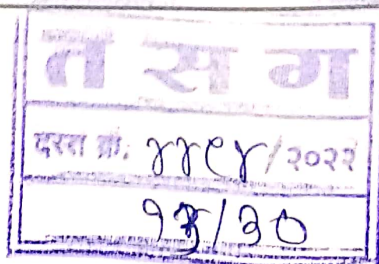 त स ग
दस्त क्र. ४४९४/२०२२
१४/३०